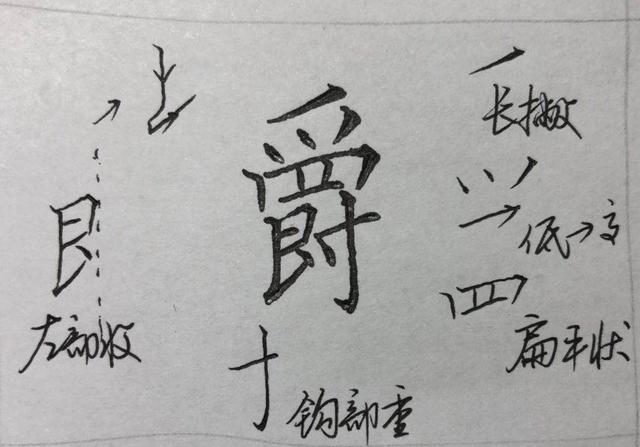 爵
长撇
低→高
扁平状
左部收
钩部重